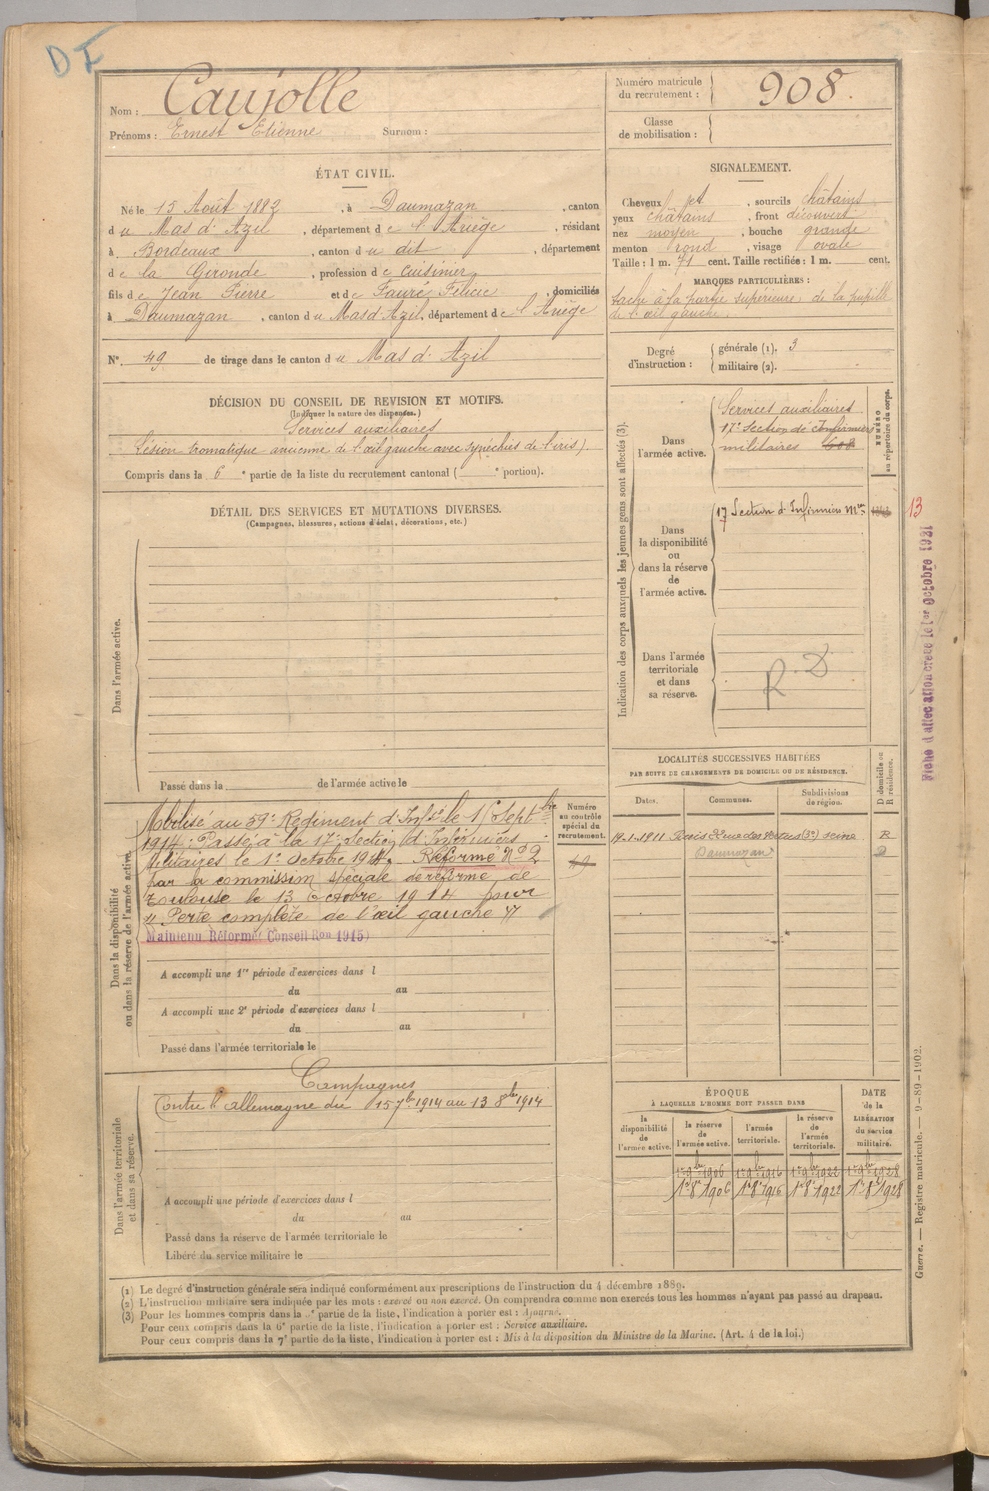 DI
Nom : Caujolle
Prénoms : Ernest Etienne Surnom :
Numéro matricule
du recrutement : 908.
Classe
de mobilisation :
ÉTAT CIVIL.
Né le 13 Août 1882, à Daumazan, canton
du Mas d'Azil, département de l'Ariège, résidant
à Bordeaux, canton du dit, département
de la Gironde, profession de cuisinier
fils de Jean Pierre et de Fauré Félicie, domiciliés
à Daumazan, canton du Mas d'Azil, département de l'Ariège
N° 49 de tirage dans le canton du Mas d'Azil
SIGNALEMENT.
Cheveux jet, sourcils châtains
yeux châtains, front découvert
nez moyen, bouche grande
menton rond, visage ovale
Taille : 1 m. 71 cent. Taille rectifiée : 1 m. cent.
MARQUES PARTICULIÈRES :
tache à la partie supérieure de la pupille
de l'œil gauche.
Degré
d'instruction :
générale (1). 3
militaire (2).
DÉCISION DU CONSEIL DE REVISION ET MOTIFS.
(Indiquer la nature des dispenses.)
Services auxiliaires
Lésion tromatique ancienne de l'œil gauche avec synéchies de l'iris).
Compris dans la 6e partie de la liste du recrutement cantonal ( e portion).
DÉTAIL DES SERVICES ET MUTATIONS DIVERSES.
(Campagnes, blessures, actions d'éclat, décorations, etc.)
Dans l'armée active.
Passé dans la de l'armée active le
Indication des corps auxquels les jeunes gens sont affectés (3).
Dans
l'armée active.
Services auxiliaires
17e Section de infirmiers
militaires 608
NUMÉRO
au répertoire du corps.
Dans
la disponibilité
ou
dans la réserve
de
l'armée active.
17 Section d'Infirmiers Mres
13
Fiche d'affectation créée le 1er Octobre 1931
Dans l'armée
territoriale
et dans
sa réserve.
R.D
LOCALITÉS SUCCESSIVES HABITÉES
PAR SUITE DE CHANGEMENTS DE DOMICILE OU DE RÉSIDENCE.
Dates. Communes. Subdivisions
de région.
D domicile ou
R résidence.
19-1-1911 Paris 8 rue des Vertus (3e) seine R
Daumazan D
Dans la disponibilité
ou dans la réserve de l'armée active.
Mobilisé au 59e Régiment d'Infie le 15 Septbre
1914. Passé à la 17e Section d'Infirmiers
Militaires le 1er Octobre 1914. Réformé N° 2
par la commission spéciale de réforme de
Toulouse le 13 Octobre 1914 pour
" Perte complète de l'œil gauche "
Maintenu Réformé (Conseil Ron 1915)
Numéro
au contrôle
spécial du
recrutement.
49
A accompli une 1re période d'exercices dans l
du au
A accompli une 2e période d'exercices dans l
du au
Passé dans l'armée territoriale le
Dans l'armée territoriale
et dans sa réserve.
Campagnes
Contre l'Allemagne du 15 7bre 1914 au 13 8bre 1914
A accompli une période d'exercices dans l
du au
Passé dans la réserve de l'armée territoriale le
Libéré du service militaire le
ÉPOQUE
À LAQUELLE L'HOMME DOIT PASSER DANS
DATE
de la
LIBÉRATION
du service
militaire.
la
disponibilité
de
l'armée active.
la réserve
de
l'armée active.
l'armée
territoriale.
la réserve
de
l'armée
territoriale.
1er 9bre 1906 1er 9bre 1916 1er 9bre 1922 1er 9bre 1928
1er 8e 1906 1er 8e 1916 1er 8e 1922 1er 8e 1928
(1) Le degré d'instruction générale sera indiqué conformément aux prescriptions de l'instruction du 4 décembre 1889.
(2) L'instruction militaire sera indiquée par les mots : exercé ou non exercé. On comprendra comme non exercés tous les hommes n'ayant pas passé au drapeau.
(3) Pour les hommes compris dans la 5e partie de la liste, l'indication à porter est : Ajourné.
Pour ceux compris dans la 6e partie de la liste, l'indication à porter est : Service auxiliaire.
Pour ceux compris dans la 7e partie de la liste, l'indication à porter est : Mis à la disposition du Ministre de la Marine. (Art. 4 de la loi.)
Guerre. — Registre matricule. — 9-89-1902.